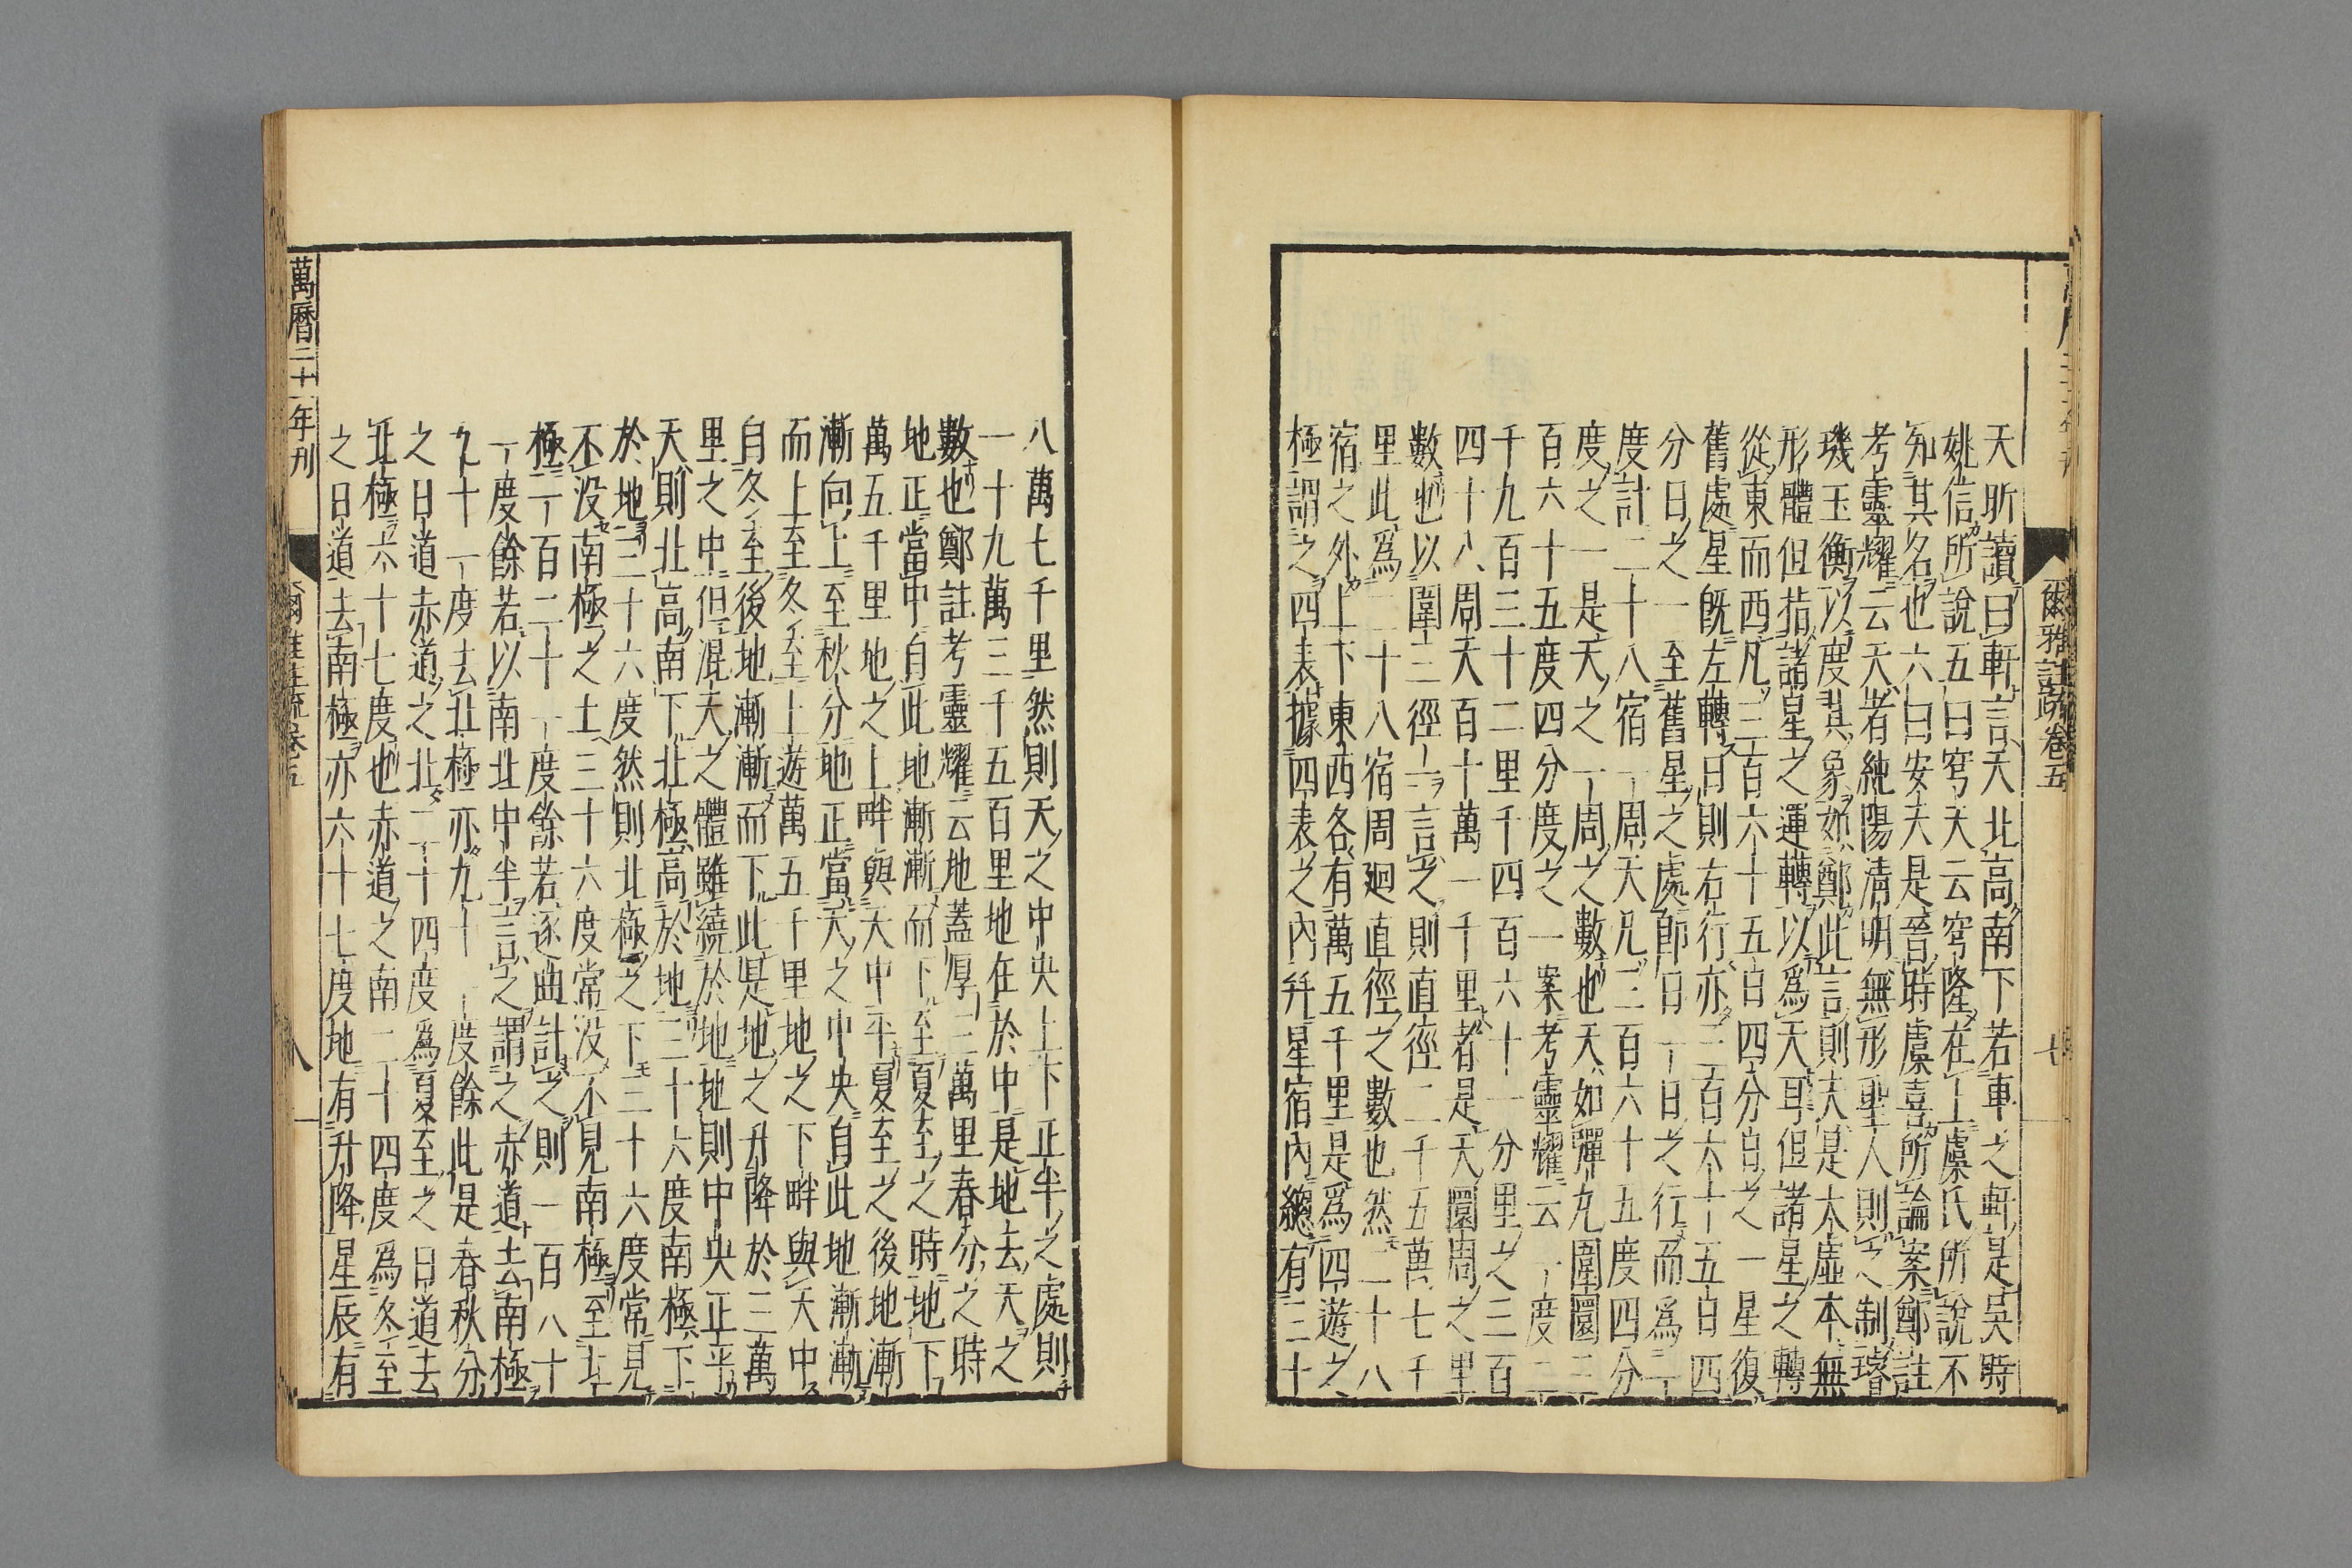 爾雅註疏卷五
七
天昕讀曰軒言天北高南下若車之軒是吳時
姚信所說五曰穹天云穹隆在上虞氏所說不
知其名也六曰安天是晉時虞喜所論案鄭註
考靈耀云天者純陽清明無形聖人則之制璿
璣玉衡以度其象如鄭此言則天是太虛本無
形體但指諸星之運轉以爲天耳但諸星之轉
從東而西凡三百六十五日四分日之一星復
舊處星旣左轉日則右行亦三百六十五日四
分日之一至舊星之處卽日一日之行而爲一
度計二十八宿一周天凡三百六十五度四分
度之一是天之一周之數也天如彈丸圍圜三
百六十五度四分度之一案考靈耀云一度二
千九百三十二里千四百六十一分里之三百
四十八周天百十萬一千里者是天圜周之里
數也以圍三徑一言之則直徑二千五萬七千
里此爲二十八宿周迴直徑之數也然二十八
宿之外上下東西各有萬五千里是爲四遊之
極謂之四表據四表之內幷星宿內總有三十
八萬七千里然則天之中央上下正半之處則
一十九萬三千五百里地在於中是地去天之
數也鄭註考靈耀云地蓋厚三萬里春分之時
地正當中自此地漸漸而下至夏至之時地下
萬五千里地之上畔與天中平夏至之後地漸
漸向上至秋分地正當天之中央自此地漸漸
而上至冬至上遊萬五千里地之下畔與天中
自冬至後地漸漸而下此是地之升降於三萬
里之中但渾天之體雖繞於地地則中央正平
天則北高南下北極高於地三十六度南極下
於地三十六度然則北極之下三十六度常見
不没南極之上三十六度常没不見南極至北
極一百二十一度餘若逐曲計之則一百八十
一度餘若以南北中半言之謂之赤道去南極
九十一度去北極亦九十一度餘此是春秋分
之日道赤道之北二十四度爲夏至之日道去
北極六十七度也赤道之南二十四度爲冬至
之日道去南極亦六十七度地有升降星辰有
萬曆二十一年刊
爾雅註疏卷五
八